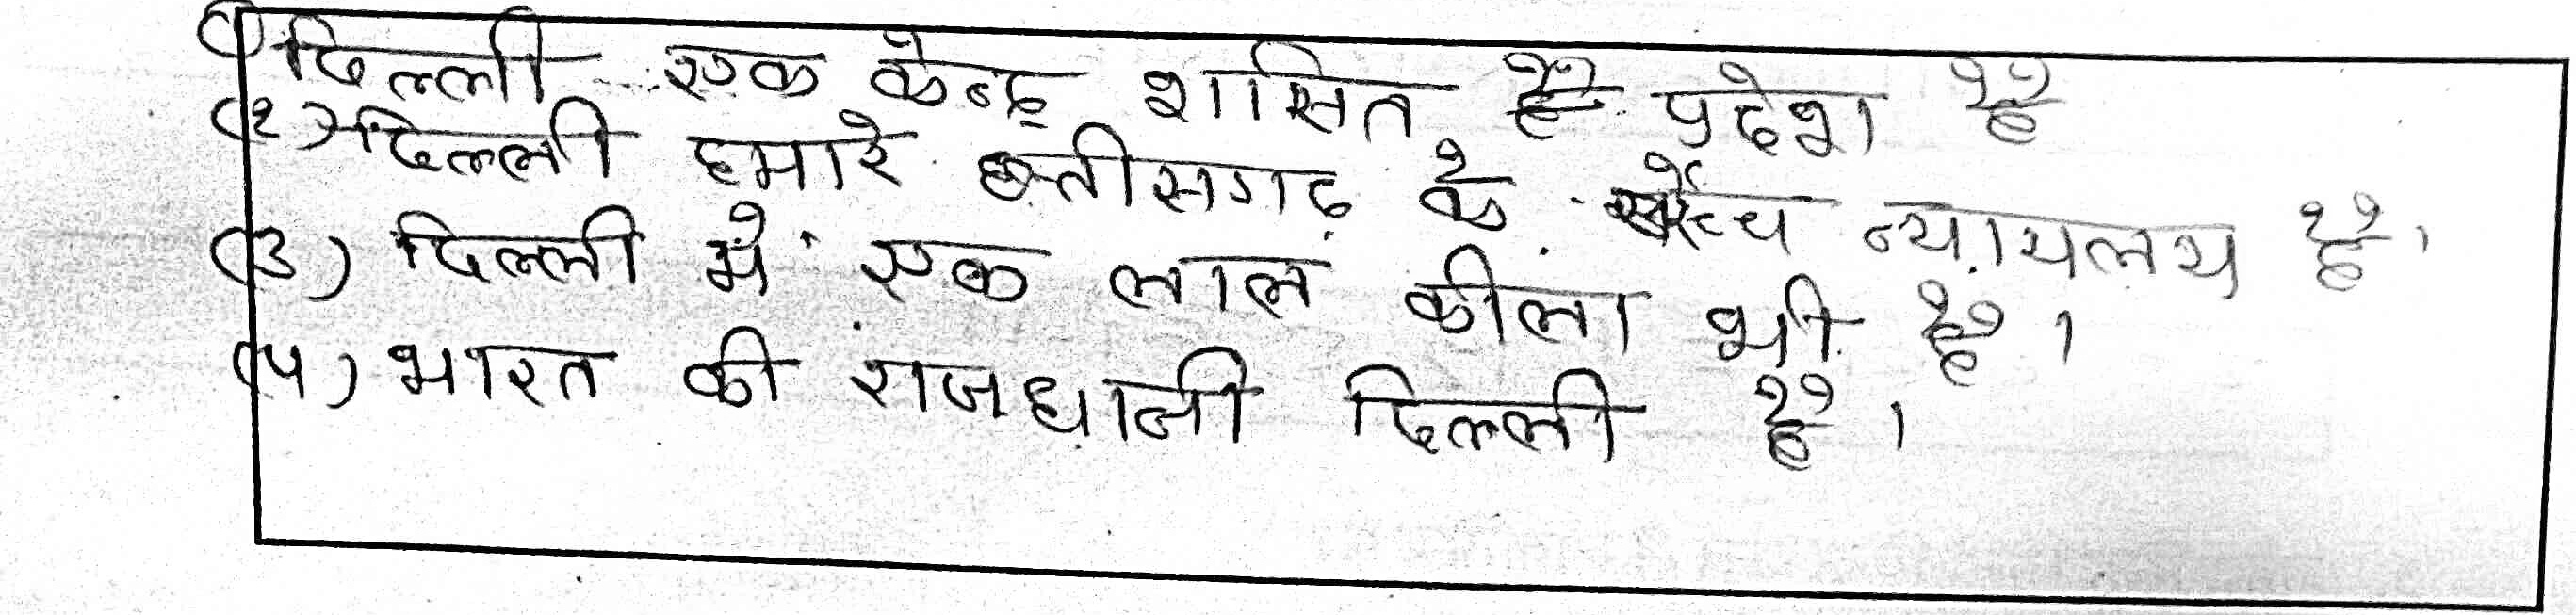 (1) दिल्ली एक केन्द्र शासित है प्रदेश है
(2) दिल्ली हमारे छत्तीसगढ़ के न्यायलय है।
(3) दिल्ली में एक लाल कीला भी है।
(4) भारत की राजधानी दिल्ली है।